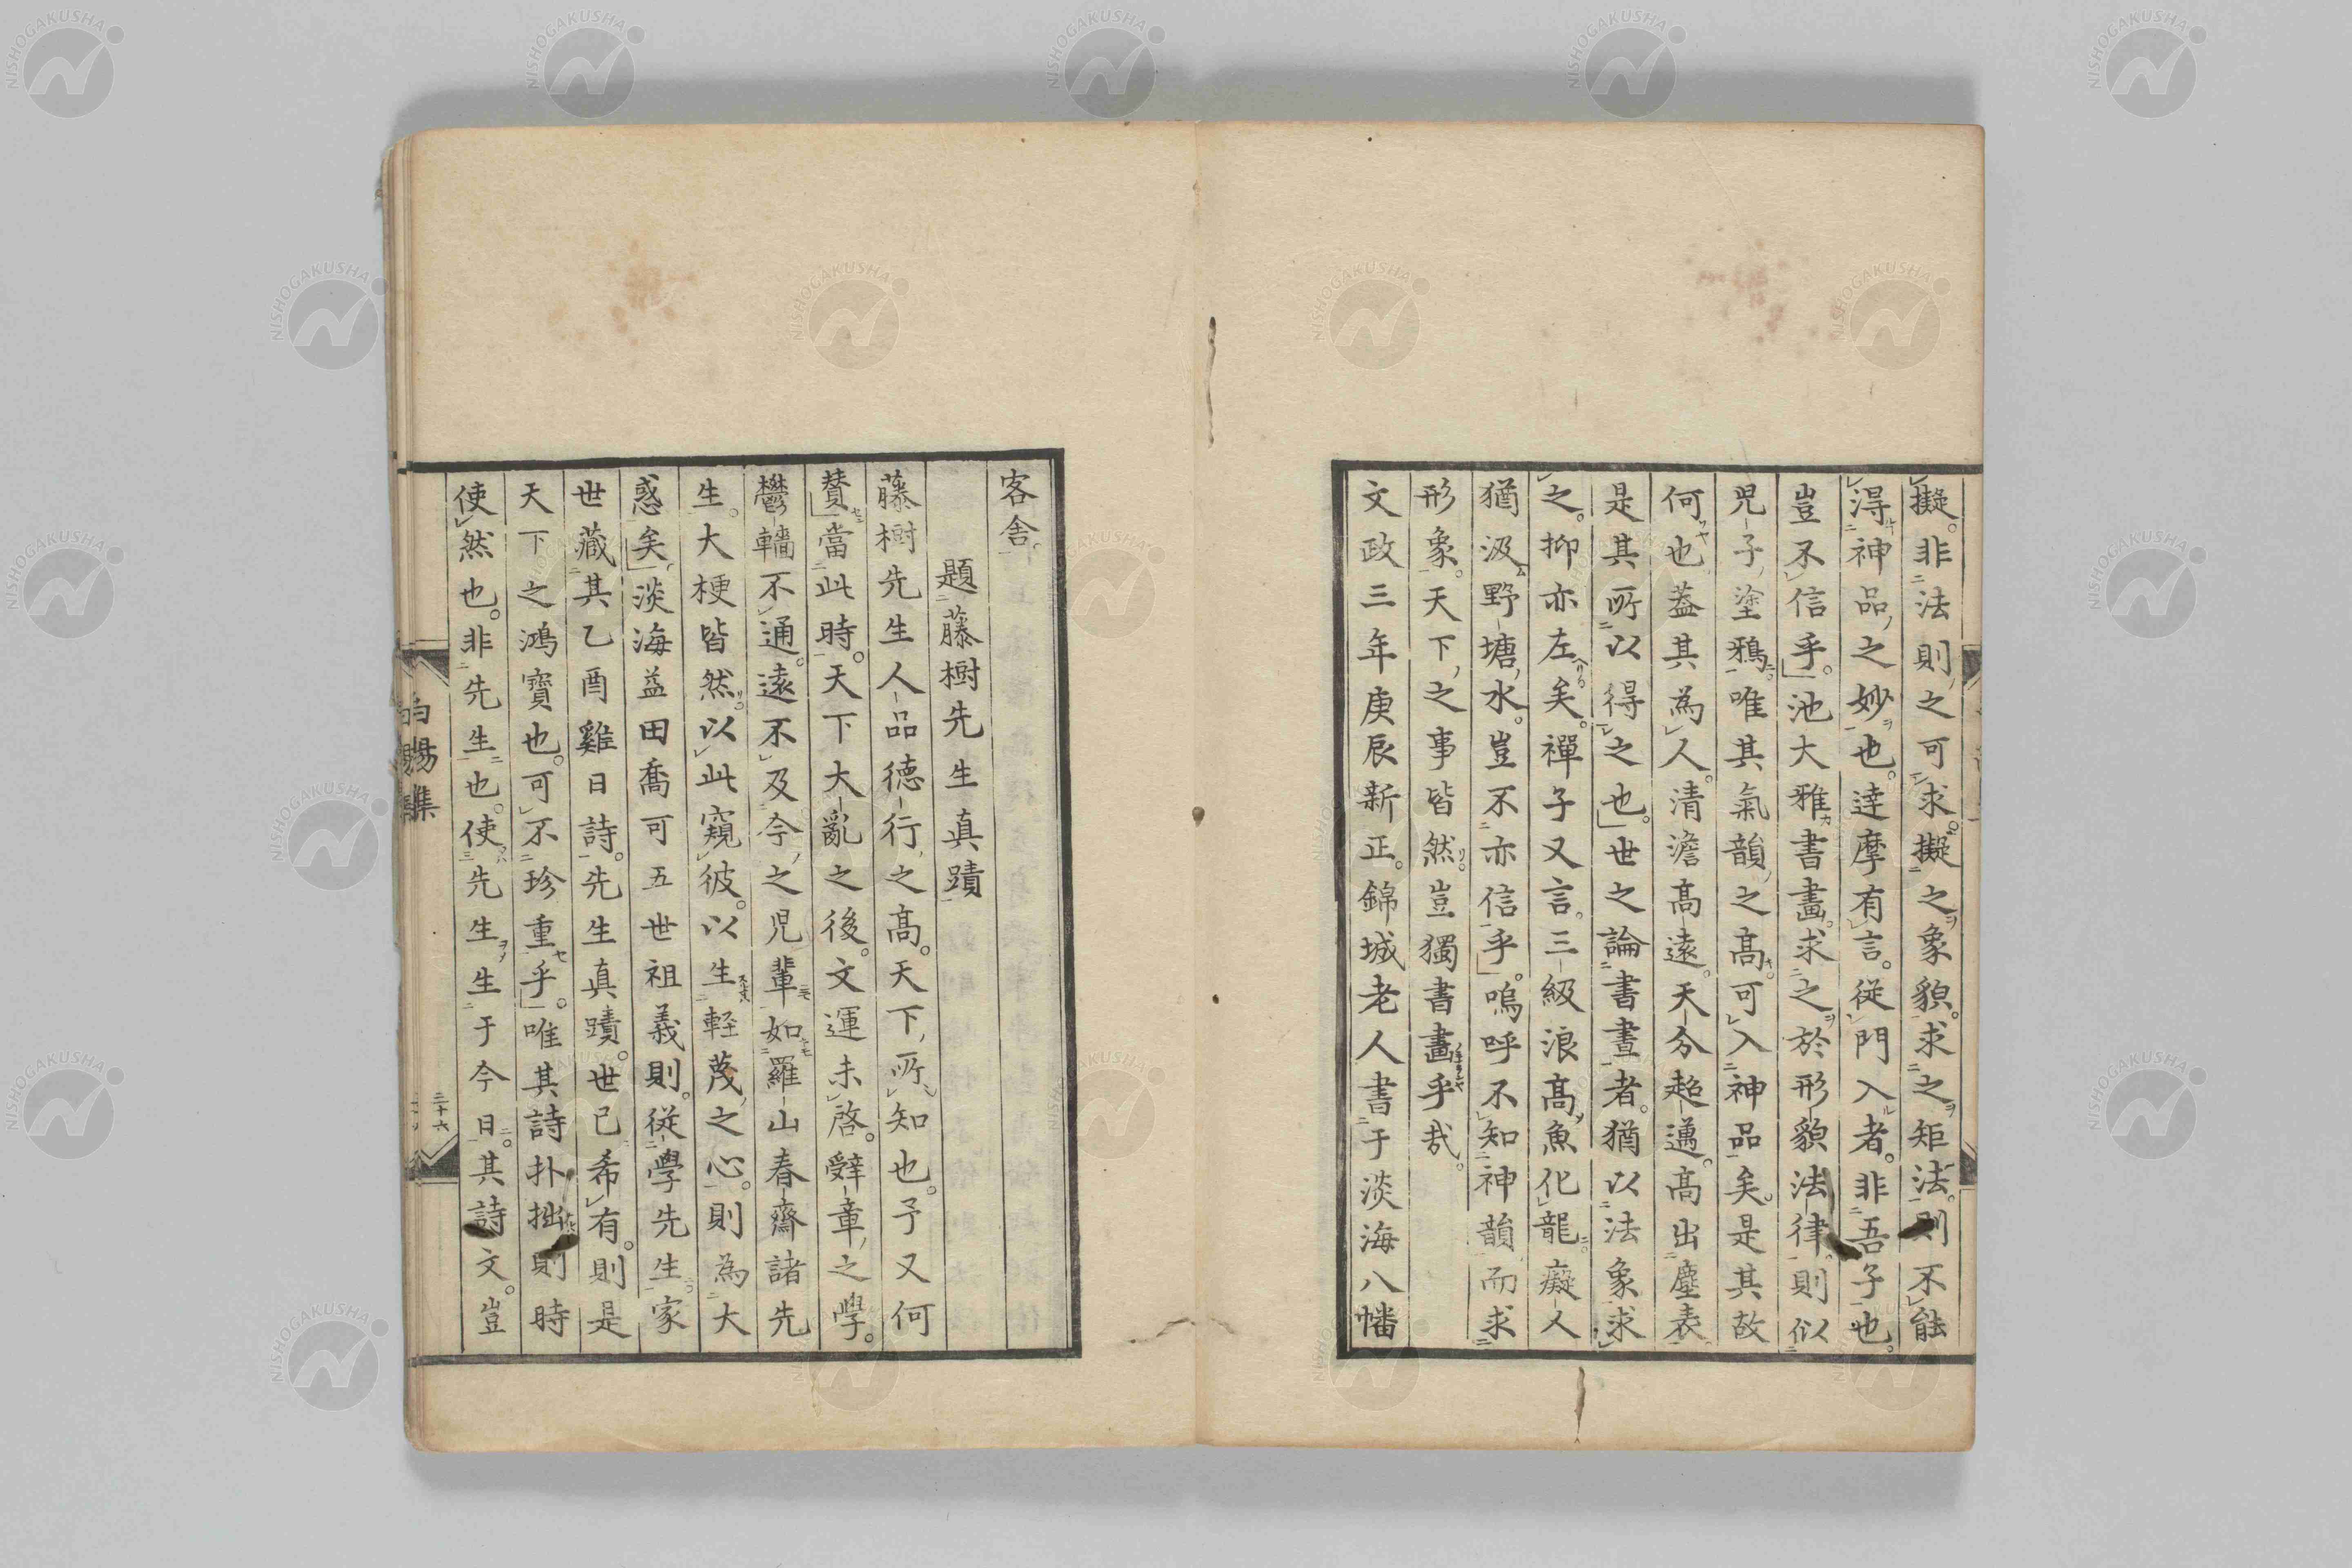 擬。非法則之可求。擬之象貌。求之矩法。則不能
得神品之妙也。達摩有言。從門入者。非吾子也。
豈不信乎。池大雅書畫。求之於形貌法律。則似
兒子塗鴉。唯其氣韻之高。可入神品矣。是其故
何也。蓋其為人。清澹高遠。天分超邁。高出塵表。
是其所以得之也。世之論書畫者。猶以法象求
之。抑亦左矣。禪子又言。三級浪高魚化龍。癡人
猶汲野塘水。豈不亦信乎。嗚呼不知神韻而求
形象。天下之事皆然。豈獨書畫乎哉。
文政三年庚辰新正。錦城老人書于淡海八幡
客舍。
題藤樹先生真蹟
藤樹先生人品德行之高。天下所知也。予又何
贊。當此時。天下大亂之後。文運未啓。辭章之學。
鬱轖不通。遠不及今之兒輩。如羅山春齋諸先
生。大梗皆然。以此窺彼。以生輕蔑之心。則為大
惑矣。淡海益田喬可五世祖義則。從學先生。家
世藏其乙酉雞日詩。先生真蹟。世已希有。則是
天下之鴻寶也。可不珍重乎。唯其詩朴拙則時
使然也。非先生也。使先生生于今日。其詩文。豈
白易集
二十六
NISHOGAKUSHA